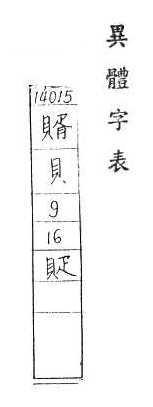 異體字表
14015
貝
9
16